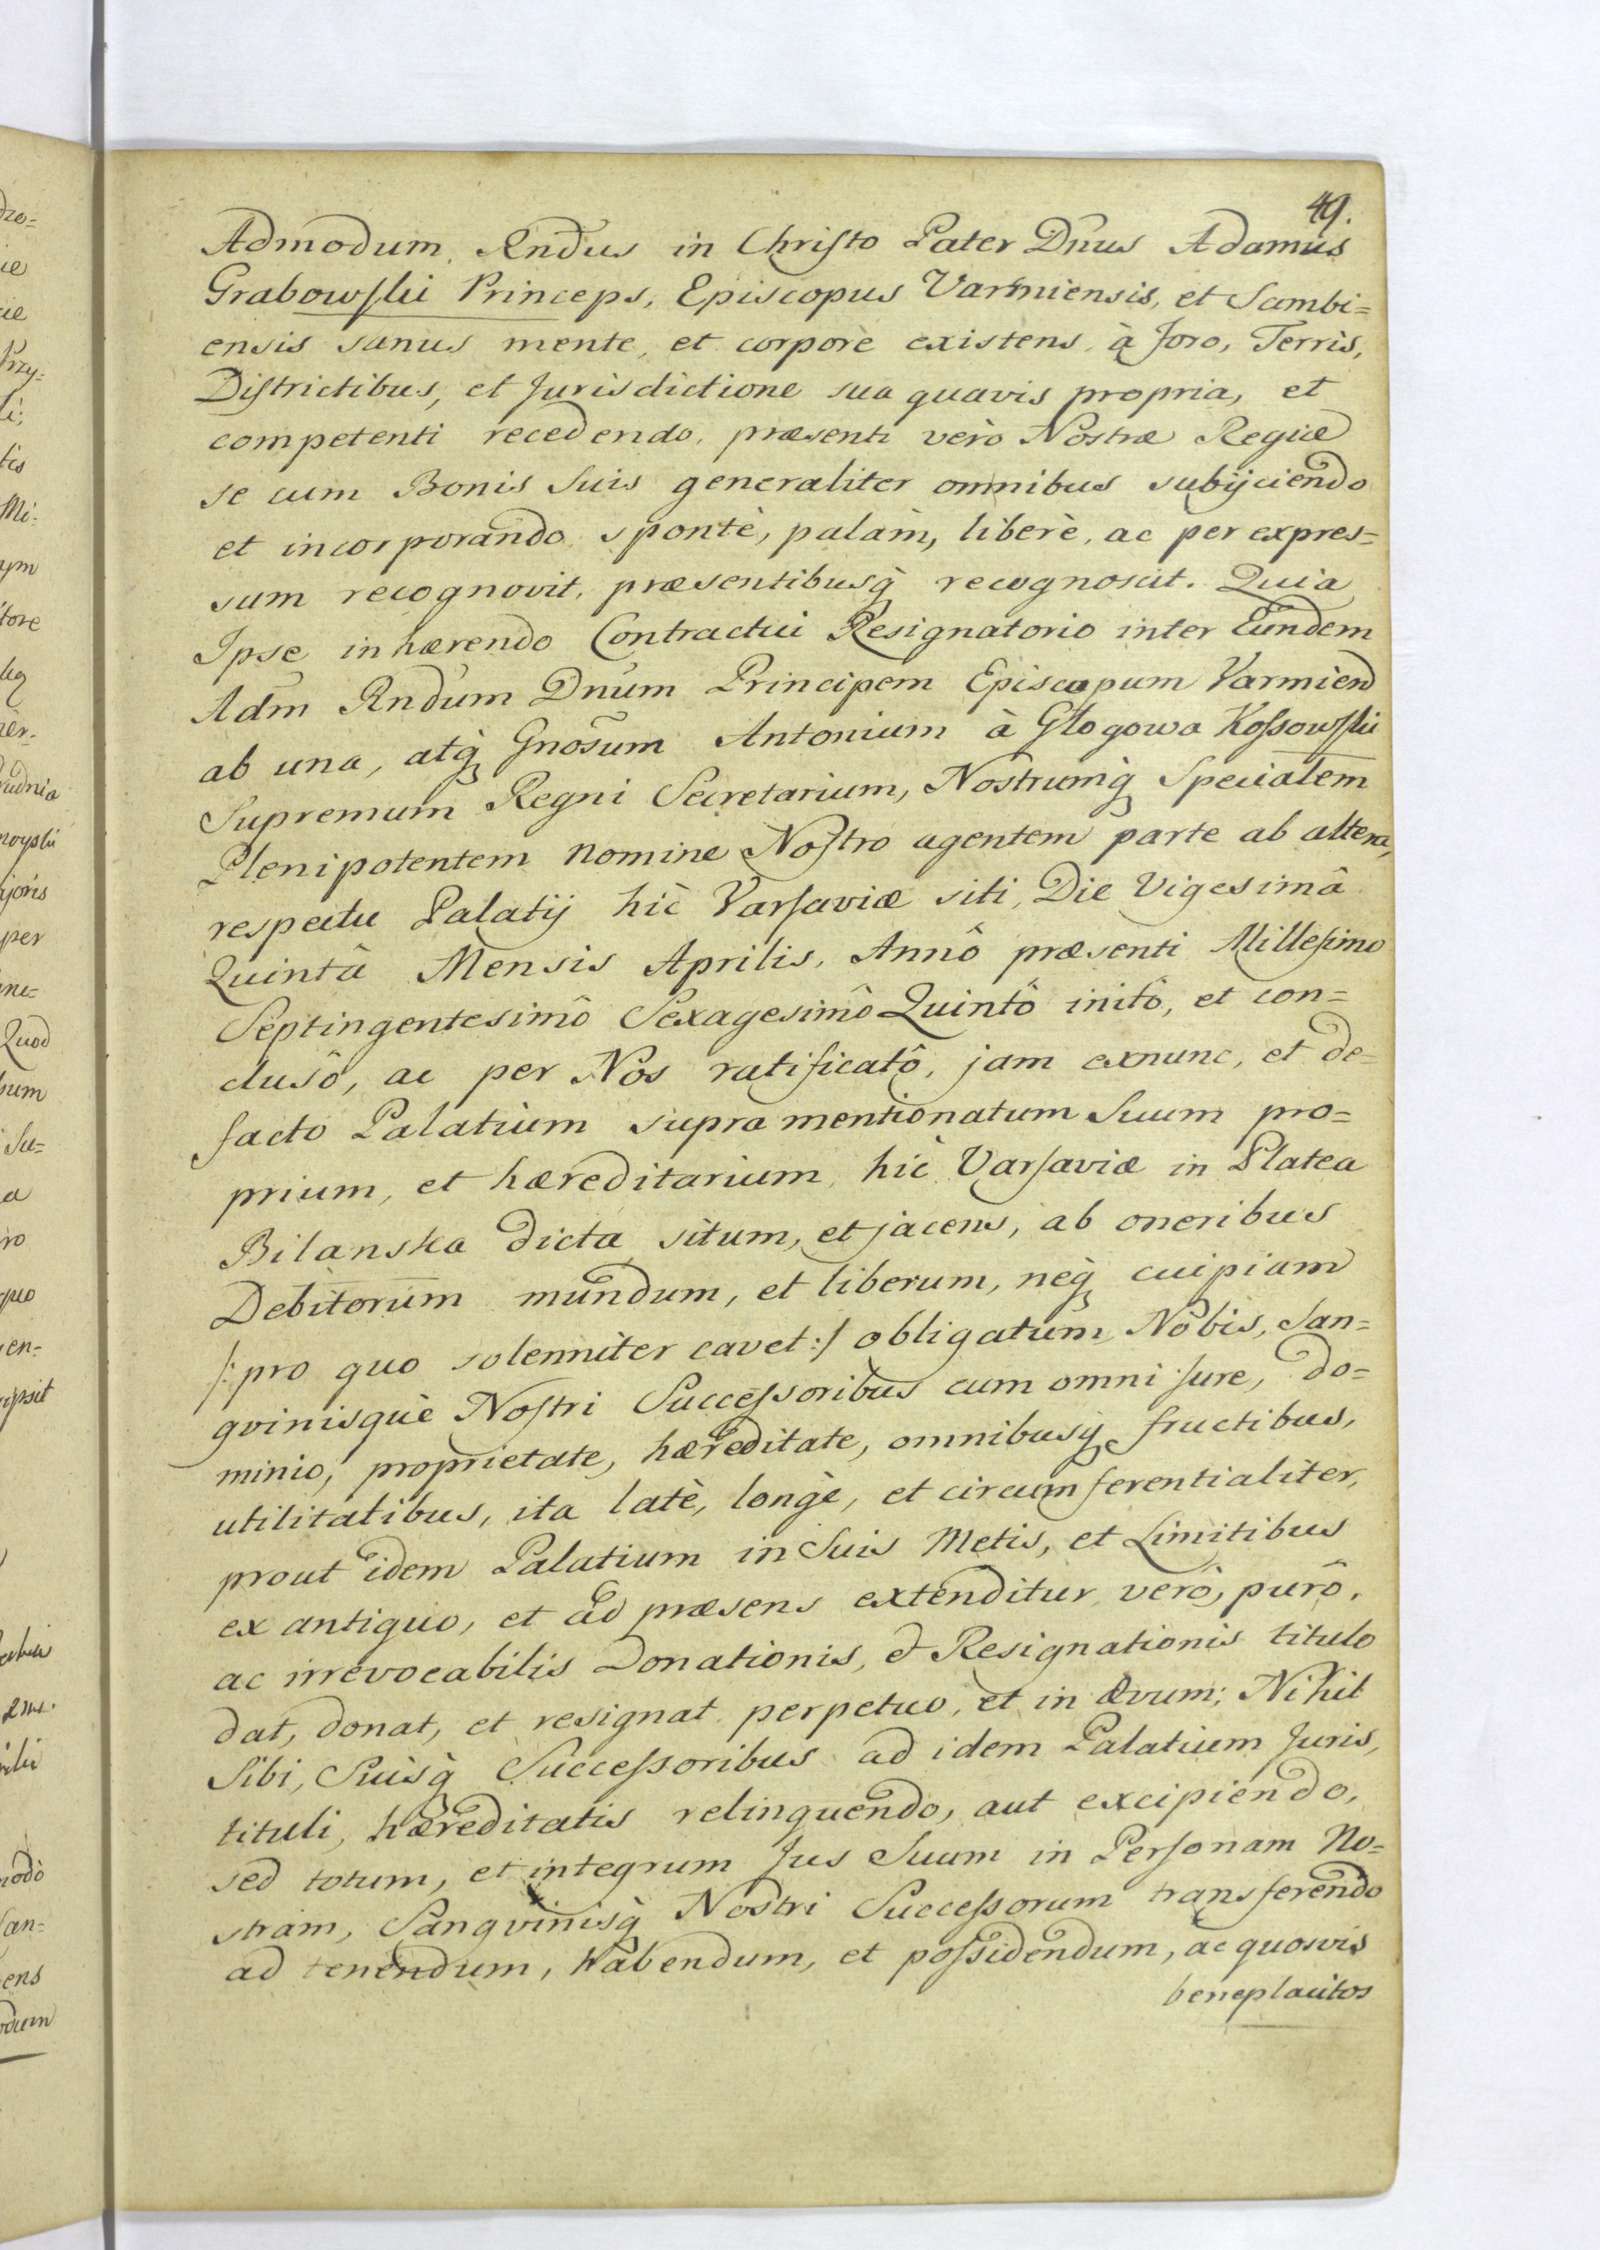 49.
Admodum Rndus in Christo Pater Dnus Adamus
Grabowski Princeps, Episcopus Varmiensis, et Sambi=
ensis sanus mente, et corporè existens, à foro, Terris,
Districtibus, et Jurisdictione sua quavis propria, et
competenti recedendo, præsenti verò Nostræ Regiæ
se cum Bonis Suis generaliter omnibus subijciendo
et incorporando spontè, palàm, liberè, ac per expres=
sum recognovit, præsentibusq̀ recognoscit. Quia
Ipse inhærendo Contractui Resignatorio inter Eundem
Adm Rndum Dnum Principem Episcopum Varmien
ab una, atq̀ Gnosum Antonium à Głogowa Kossowski
Supremum Regni Secretarium, Nostrumq̀ Specialem
Plenipotentem nomine Nostro agentem parte ab altera,
respectu Palatij hìc Varsaviæ siti, Die Vigesimâ
Quintâ Mensis Aprilis, Annô præsenti Millesimo
Septingentesimô Sexagesimô Quintô initô, et con=
clusô, ac per Nos ratificatô, jam exnunc, et de=
facto Palatium supra mentionatum Suum pro=
prium, et hæreditarium, hìc Varsaviæ in Platea
Bilanska dicta situm, et jacens, ab oneribus
Debitorum mundum, et liberum, neq̀ cuipiam
/: pro quo solenniter cavet :/ obligatum, Nobis, San=
gvinisquè Nostri Successoribus cum omni jure, do=
minio, proprietate, hæreditate, omnibusq̀ fructibus,
utilitatibus, ita latè, longè, et circumferentialiter,
prout idem Palatium in Suis Metis, et Limitibus
ex antiquo, et ad præsens extenditur verô, purô,
ac irrevocabilis Donationis, & Resignationis titulo
dat, donat, et resignat perpetuo, et in ævum; Nihil
Sibi, Suisq̀ Successoribus ad idem Palatium Juris,
tituli, hæreditatis relinquendo, aut excipiendo,
sed totum, et integrum Jus Suum in Personam No=
stram, Sangvinisq̀ Nostri Successorum transferendo
ad tenendum, habendum, et possidendum, ac quosvis
beneplacitos